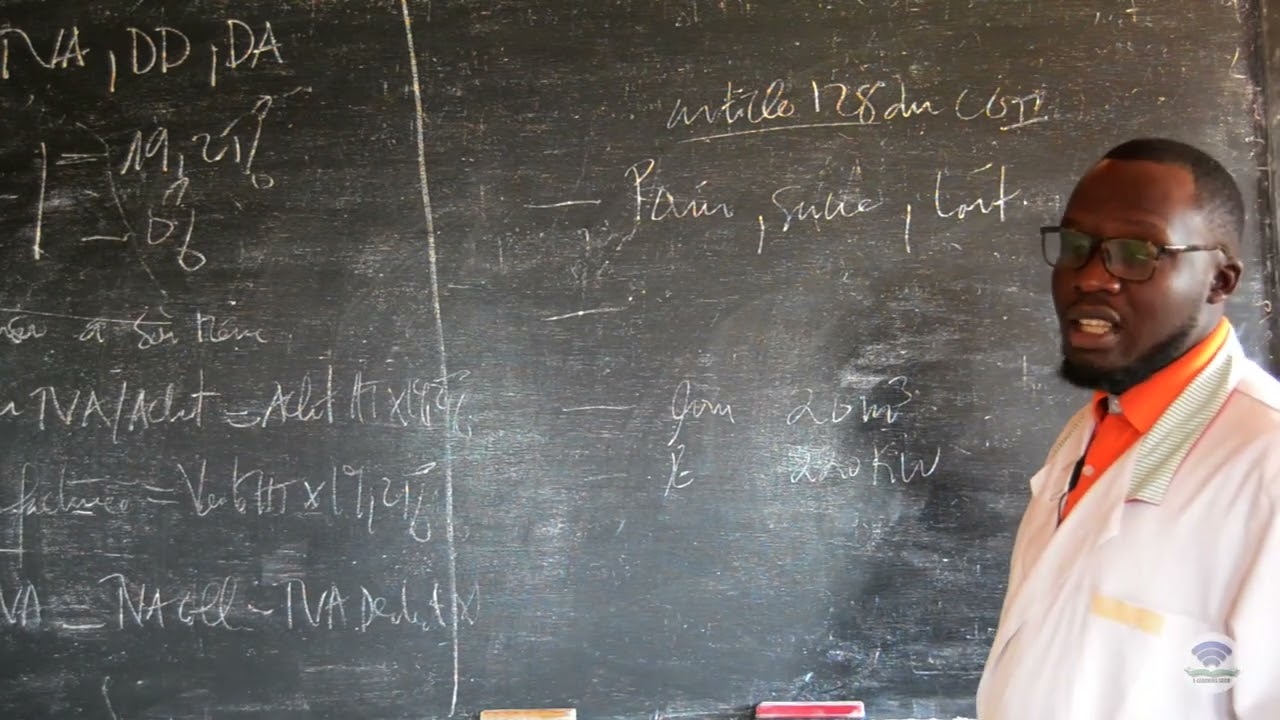 TVA, DD, DA
19,25%
0%
à son tiers
TVA/Achat = Achat HT x 19,25%
facturée = Vente HT x 19,25%
TVA = TVA Coll - TVA Deduct
article 128 du CGI
— Pain, sucre, lait
— 20 m³
E 220 KW